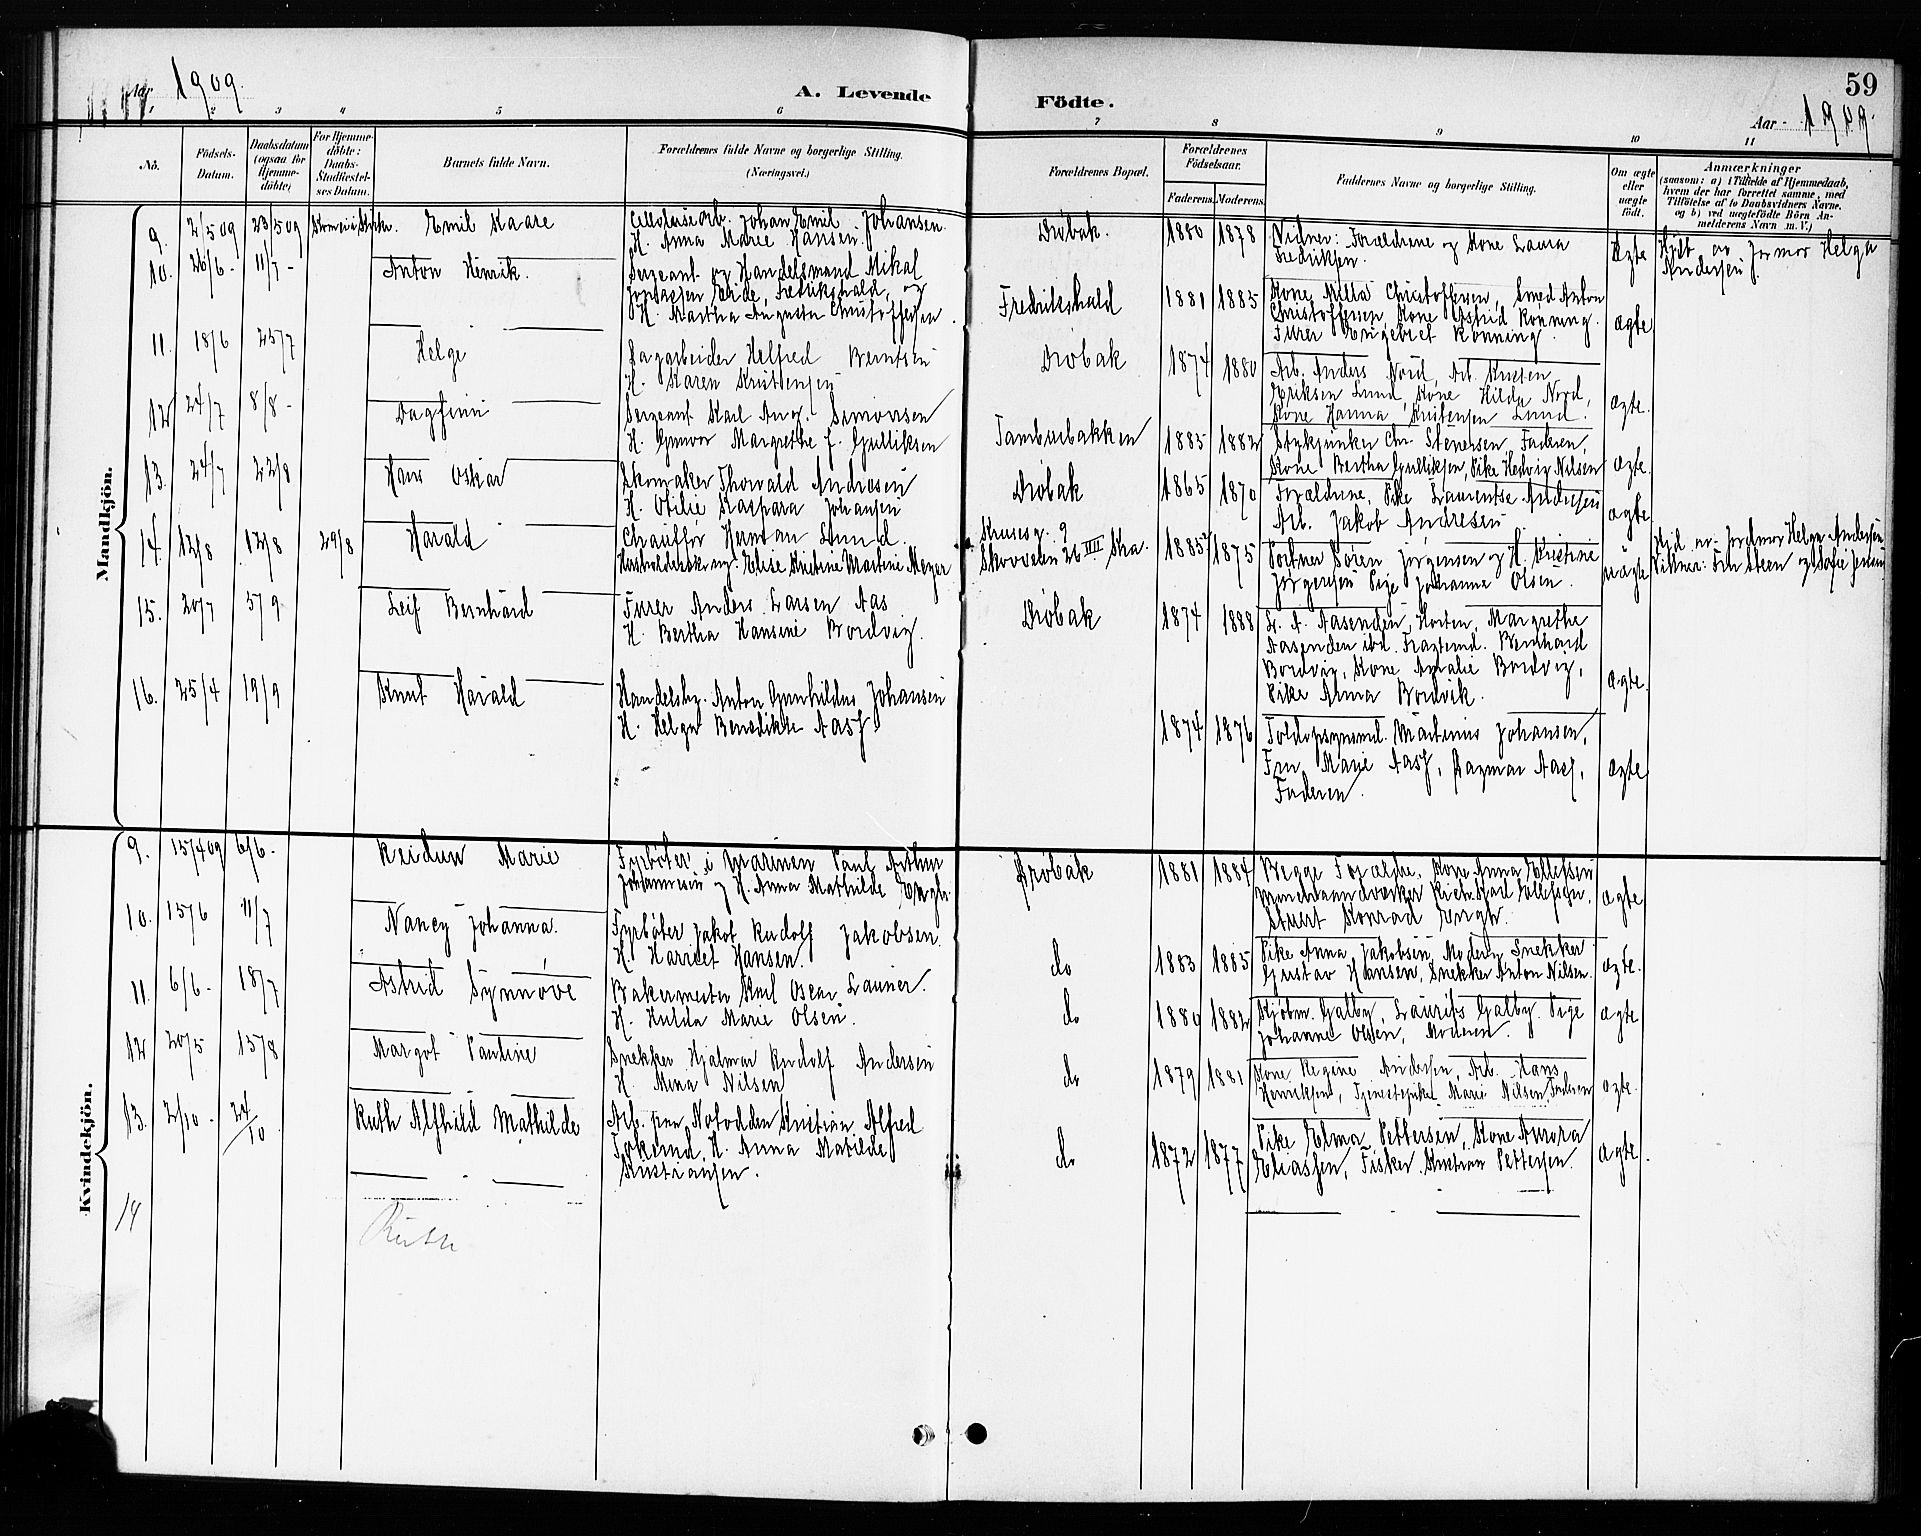 Aar 1909.
A. Levende Födte.
59
Aar 1909.
1 2 3 4 5 6 7 8 9 10 11
No.
Födsels-Datum.
Daabsdatum (ogsaa for Hjemmedöbte)
For Hjemmedöbte: Daabs-Stadfæstelses Datum.
Barnets fulde Navn.
Forældrenes fulde Navne og borgerlige Stilling. (Næringsvei.)
Forældrenes Bopæl.
Forældrenes Födselsaar.
Faderens. Moderens.
Faddernes Navne og borgerlige Stilling.
Om ægte eller uægte födt.
Anmærkninger
(saasom: a) i Tilfælde af Hjemmedaab, hvem der har forrettet samme, med Tilföielse af to Daabsvidners Navne, og b) ved uægtefödte Börn Anmelderens Navn m. V.)
Mandkjön.
9. 2/5 09 23/5 09 Emil Kaare
Johan Emil Johansen.
H. Anna Marie Hansen.
Drøbak. 1880 1878
Vidner: Forældrene og Kone Laura
Fredriksen.
Ægte
Hjdt av Jormor Helga
Andersen
10. 26/6 - 11/7 - Anton Henrik.
Sergeant og Handelsmand Mikal
Eide, Fredrikshald, og
H. Martha Augusta Christoffersen.
Fredrikshald 1881 1885
Kone Milla Christoffersen, Smed Anton
Christoffersen, Kone Astrid Rønning.
Furer Engebret Rønning.
ægte
11. 18/6 25/7 Helge
Sagarbeider Halfred Berntsen
H. Karen Kristensen
Drøbak 1874 1880
Arb. Anders Nord, Arb. Kristen
Eriksen Lund, Kone Hilda Nord,
Kone Hanna Kristensen Lund.
ægte.
12 24/7 8/8 - Dagfinn
Sergeant Karl Aug. Simonsen
H. Gunvor Margrethe f. Gulliksen
Tamburbakken 1885 1882
Stykjunker Chr. Stenersen, Faderen,
Kone Bertha Gulliksen, Pike Hedvig Nilsen
ægte.
13. 24/7 22/8 Hans Oskar
Skomaker Thorvald Andresen
H. Otilie Kaspara Johansen
Drøbak 1865 1870
Forældrene, Pike Laurentse Andresen
Arb. Jakob Andresen
ægte
14. 12/8 12/8 29/8 Harald
Chauffør Herman Lund.
Husholderske ug. Elise Kristine Martine Meyer
Skovveien 26 III Kra.
1885 1875
Portner Søren Jørgensen og H. Kristine
Jørgensen Pige Johanna Olsen.
uægte
Hjd. av Jordmor Helga Andersen
Vidner: Frk Steen og Sofie Jensen
15. 20/7 5/9 Leif Bernhard
Furer Anders Larsen Aas
H. Bertha Hansine Bordvig.
Drøbak 1874 1888
L. A. Aasenden, Horten, Margrethe
Aasenden ibd. Fragtemd. Bernhard
Bordvig, Kone Amalie Bordvig,
Pike Anna Bordvik.
ægte.
16. 25/4 19/9 Knut Harald
Handelsb. Anton Gunhildus Johansen
H. Helga Benedikte Aass.
1874 1876
Toldopsynsmd. Martinius Johansen,
Fru Marie Aass, Dagmar Aass,
Faderen.
ægte
Kvindekjön.
9. 15/4 09 6/6 - Reidun Marie
Fyrbøter i Marinen Paul Arthur
Johannesen og H. Anna Mathilde Engh.
Drøbak 1881 1884
Begge Forældre, Kone Anna Ellefsen
Minehaandverker Rich. Karl Ellefsen,
Stuert Konrad Engh.
ægte
10. 15/6 11/7 Nancy Johanna.
Fyrbøter Jakob Rudolf Jakobsen.
H. Harriet Hansen.
do 1883 1885
Pike Anna Jakobsen, Moderen, Snekker
Gustav Hansen, Snekker Anton Nilsen.
ægte.
11. 6/6 - 18/7 Astrid Synnøve
Bakermester Karl Oscar Launer.
H. Hulda Marie Olsen.
do 1880 1882
Kjøbm. Galby, Laurits Galby. Pige
Johanne Olsen, Moderen.
ægte
12 20/5 15/8 Margot Pauline
Snekker Hjalmar Rudolf Andersen
H. Mina Nilsen
do 1879 1881
Kone Regine Andersen, Arb. Hans
Henriksen, Tjenestepike Marie Nilsen, Faderen
ægte.
13. 2/10 - 24/10 Ruth Alfhild Mathilde
Arb. paa Notodden Kristian Alfred
H. Anna Matilde
Kristiansen.
do 1872 1877
Pike Elma Pettersen, Kone Aurora
Eliassen, Fisker Kristian Pettersen.
ægte.
14
Ruth